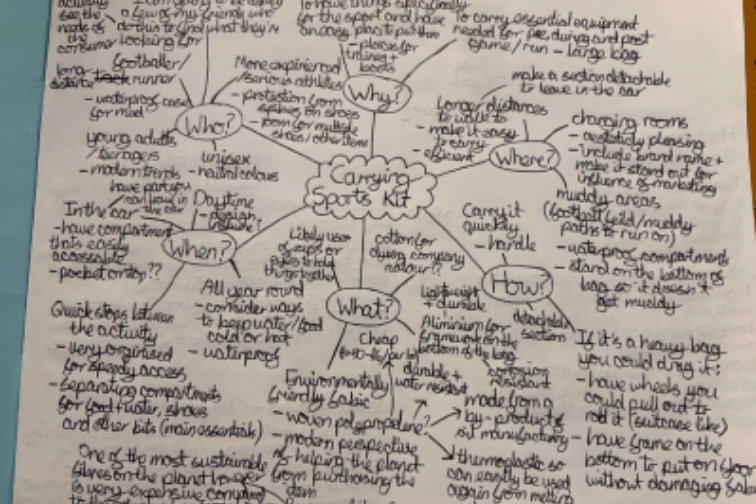 needs of
the consumer
a few of my friends who
do this to find what they're
looking for
footballer/
long distance runner
- waterproof case
for mud
young adults
/teenagers
- modern trends
unisex
- neutral colours
More experienced
/serious athletes
- protection from
spikes on shoes
- room for multiple
shoes/other items
Who?
To have things specifically
for the sport and have
an easy place to put them
- places for
trainers +
boots
Why?
To carry essential equipment
needed for pre, during and post
game/run - large bag
make a section detachable
to leave in the car
Longer distances
to walk to
- make it easy
to carry
- efficient
Where?
changing rooms
- aesthetically pleasing
- include brand name +
make it stand out for
influence of marketing
muddy areas
(football field/muddy
paths to run on)
- waterproof compartments
- stand on the bottom of
bag so it doesn't
get muddy
Carrying
Sports Kit
In the car
- have compartment
that's easily
accessible
- pocket on top??
Daytime
- design
When?
All year round
- consider ways
to keep water/food
cold or hot
- waterproof
Quick stops between
the activity
- very organised
for speedy access
- separating compartments
for food + water, shoes
and other bits (main essentials)
Likely use
of zips or
things together
cotton for
dying company
What?
Cheap
lightweight
+ durable
Aluminium for
framework on the
bottom of the bag
corrosion
resistant
durable +
water resistant
Environmentally
friendly fabric
- woven polypropelene
- modern perspective
of helping the planet
from purchasing the
item
made from a
by-product of
oil manufacturing
thermoplastic so
can easily be used
again from melting
One of the most sustainable
fibres on the planet however
is very expensive compared
Carry it
quickly
- handle
How?
detachable
section
If it's a heavy bag
you could drag it:
- have wheels you
could pull out to
roll it (suitcase like)
- have frame on the
bottom to put on floor
without damaging